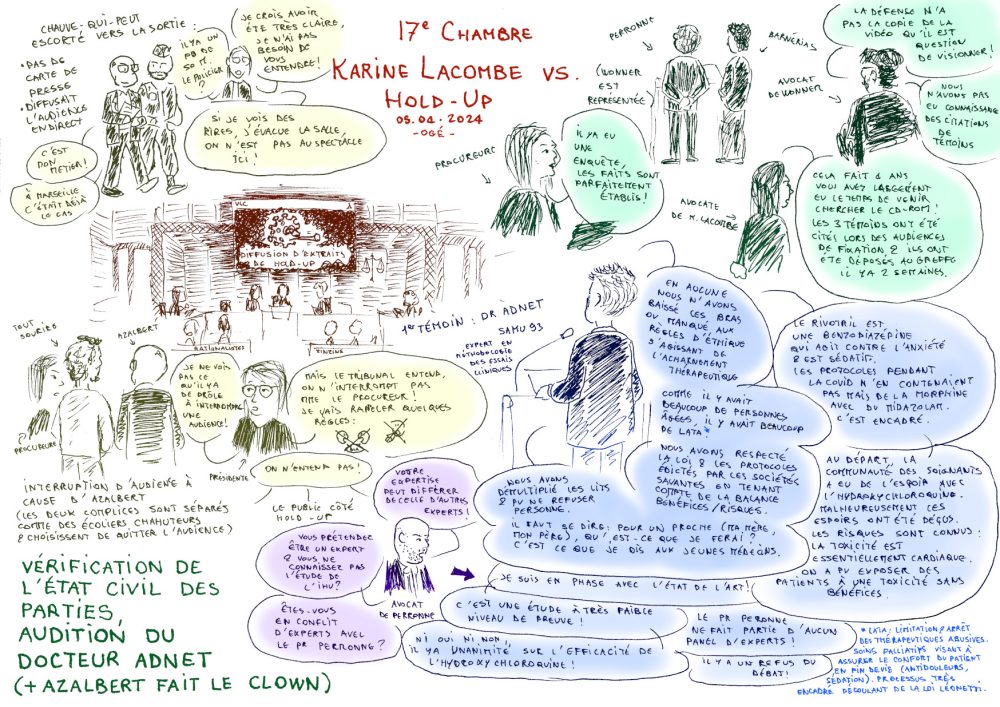 17e CHAMBRE
KARINE LACOMBE VS.
HOLD-UP
05.04.2024
- OGÉ -
CHAUVE-QUI-PEUT
ESCORTÉ VERS LA SORTIE:
• PAS DE
CARTE DE
PRESSE
• DIFFUSAIT
L'AUDIENCE
EN DIRECT
IL Y A UN
PB DE
SON M.
LE POLICIER
?
JE CROIS AVOIR
ÉTÉ TRÈS CLAIRE,
JE N'AI PAS
BESOIN DE
VOUS
ENTENDRE!
SI JE VOIS DES
RIRES, J'ÉVACUE LA SALLE,
ON N'EST PAS AU SPECTACLE
ICI!
C'EST
MON
MÉTIER!
À MARSEILLE
C'ÉTAIT DÉJÀ
LE CAS
PERRONNE
BARNÉRIAS
(WONNER
EST
REPRÉSENTÉE)
AVOCAT
DE WONNER
LA DÉFENSE N'A
PAS LA COPIE DE LA
VIDÉO QU'IL EST
QUESTION
DE VISIONNER!
NOUS
N'AVONS PAS
EU CONNAISSANCE
DES CITATIONS
DE
TÉMOINS
PROCUREURE
IL Y A EU
UNE
ENQUÊTE,
LES FAITS SONT
PARFAITEMENT
ÉTABLIS!
AVOCATE
DE M. LACOMBE
CELA FAIT 2 ANS
VOUS AVEZ LARGEMENT
EU LE TEMPS DE VENIR
CHERCHER LE CD-ROM!
LES 3 TÉMOINS ONT ÉTÉ
CITÉS LORS DES AUDIENCES
DE FIXATION & ILS ONT
ÉTÉ DÉPOSÉS AU GREFFE
IL Y A 2 SEMAINES.
VLC
DIFFUSION D'EXTRAITS
DE HOLD-UP
RATIONALISTES
ZINZINS
TOUT
SOURIRE
AZALBERT
PROCUREURE
JE NE VOIS
PAS CE
QU'IL Y A
DE DRÔLE
À INTERROMPRE
UNE
AUDIENCE!
MAIS LE TRIBUNAL ENTEND,
ON N'INTERROMPT PAS
MME LE PROCUREUR!
JE VAIS RAPPELER QUELQUES
RÈGLES:
PRÉSIDENTE
ON N'ENTEND PAS!
LE PUBLIC CÔTÉ
HOLD-UP
INTERRUPTION D'AUDIENCE À
CAUSE D'AZALBERT
(LES DEUX COMPLICES SONT SÉPARÉS
COMME DES ÉCOLIERS CHAHUTEURS
& CHOISISSENT DE QUITTER L'AUDIENCE)
VÉRIFICATION DE
L'ÉTAT CIVIL DES
PARTIES,
AUDITION DU
DOCTEUR ADNET
(+ AZALBERT FAIT LE CLOWN)
1er TÉMOIN: DR ADNET
SAMU 93
EXPERT EN
MÉTHODOLOGIE
DES ESSAIS
CLINIQUES
EN AUCUNE
NOUS N'AVONS
BAISSÉ LES BRAS
OU MANQUÉ AUX
RÈGLES D'ÉTHIQUE
S'AGISSANT DE
L'ACHARNEMENT
THÉRAPEUTIQUE
COMME IL Y AVAIT
BEAUCOUP DE PERSONNES
ÂGÉES, IL Y AVAIT BEAUCOUP
DE LATA!*
NOUS AVONS RESPECTÉ
LA LOI & LES PROTOCOLES
ÉDICTÉS PAR LES SOCIÉTÉS
SAVANTES EN TENANT
COMPTE DE LA BALANCE
BÉNÉFICES/RISQUES.
NOUS AVONS
DÉMULTIPLIÉ LES LITS
& PU NE REFUSER
PERSONNE.
IL FAUT SE DIRE: POUR UN PROCHE (MA MÈRE,
MON PÈRE), QU'EST-CE QUE JE FERAI?
C'EST CE QUE JE DIS AUX JEUNES MÉDECINS.
LE RIVOTRIL EST
UNE BENZODIAZÉPINE
QUI AGIT CONTRE L'ANXIÉTÉ
& EST SÉDATIF.
LES PROTOCOLES PENDANT
LA COVID N'EN CONTENAIENT
PAS MAIS DE LA MORPHINE
AVEC DU MIDAZOLAM.
C'EST ENCADRÉ.
AU DÉPART, LA
COMMUNAUTÉ DES SOIGNANTS
A EU DE L'ESPOIR AVEC
L'HYDROXYCHLOROQUINE.
MALHEUREUSEMENT CES
ESPOIRS ONT ÉTÉ DÉÇUS.
LES RISQUES SONT CONNUS:
LA TOXICITÉ EST
ESSENTIELLEMENT CARDIAQUE.
ON A PU EXPOSER DES
PATIENTS À UNE TOXICITÉ SANS
BÉNÉFICES.
VOTRE
EXPERTISE
PEUT DIFFÉRER
DE CELLE D'AUTRES
EXPERTS!
VOUS PRÉTENDEZ
ÊTRE UN EXPERT
& VOUS NE
CONNAISSEZ PAS
L'ÉTUDE DE
L'IHU?
ÊTES-VOUS
EN CONFLIT
D'EXPERTS AVEC
LE PR PERRONNE?
AVOCAT
DE PERRONNE
JE SUIS EN PHASE AVEC L'ÉTAT DE L'ART!
C'EST UNE ÉTUDE À TRÈS FAIBLE
NIVEAU DE PREUVE!
NI OUI NI NON,
IL Y A UNANIMITÉ SUR L'EFFICACITÉ DE
L'HYDROXYCHLOROQUINE!
LE PR PERONNE
NE FAIT PARTIE D'AUCUN
PANEL D'EXPERTS!
IL Y A UN REFUS DU
DÉBAT!
* LATA: LIMITATION & ARRÊT
DES THÉRAPEUTIQUES ABUSIVES.
SOINS PALLIATIFS VISANT À
ASSURER LE CONFORT DU PATIENT
EN FIN DE VIE (ANTIDOULEURS,
SÉDATION). PROCESSUS TRÈS
ENCADRÉ DÉCOULANT DE LA LOI LÉONETTI.